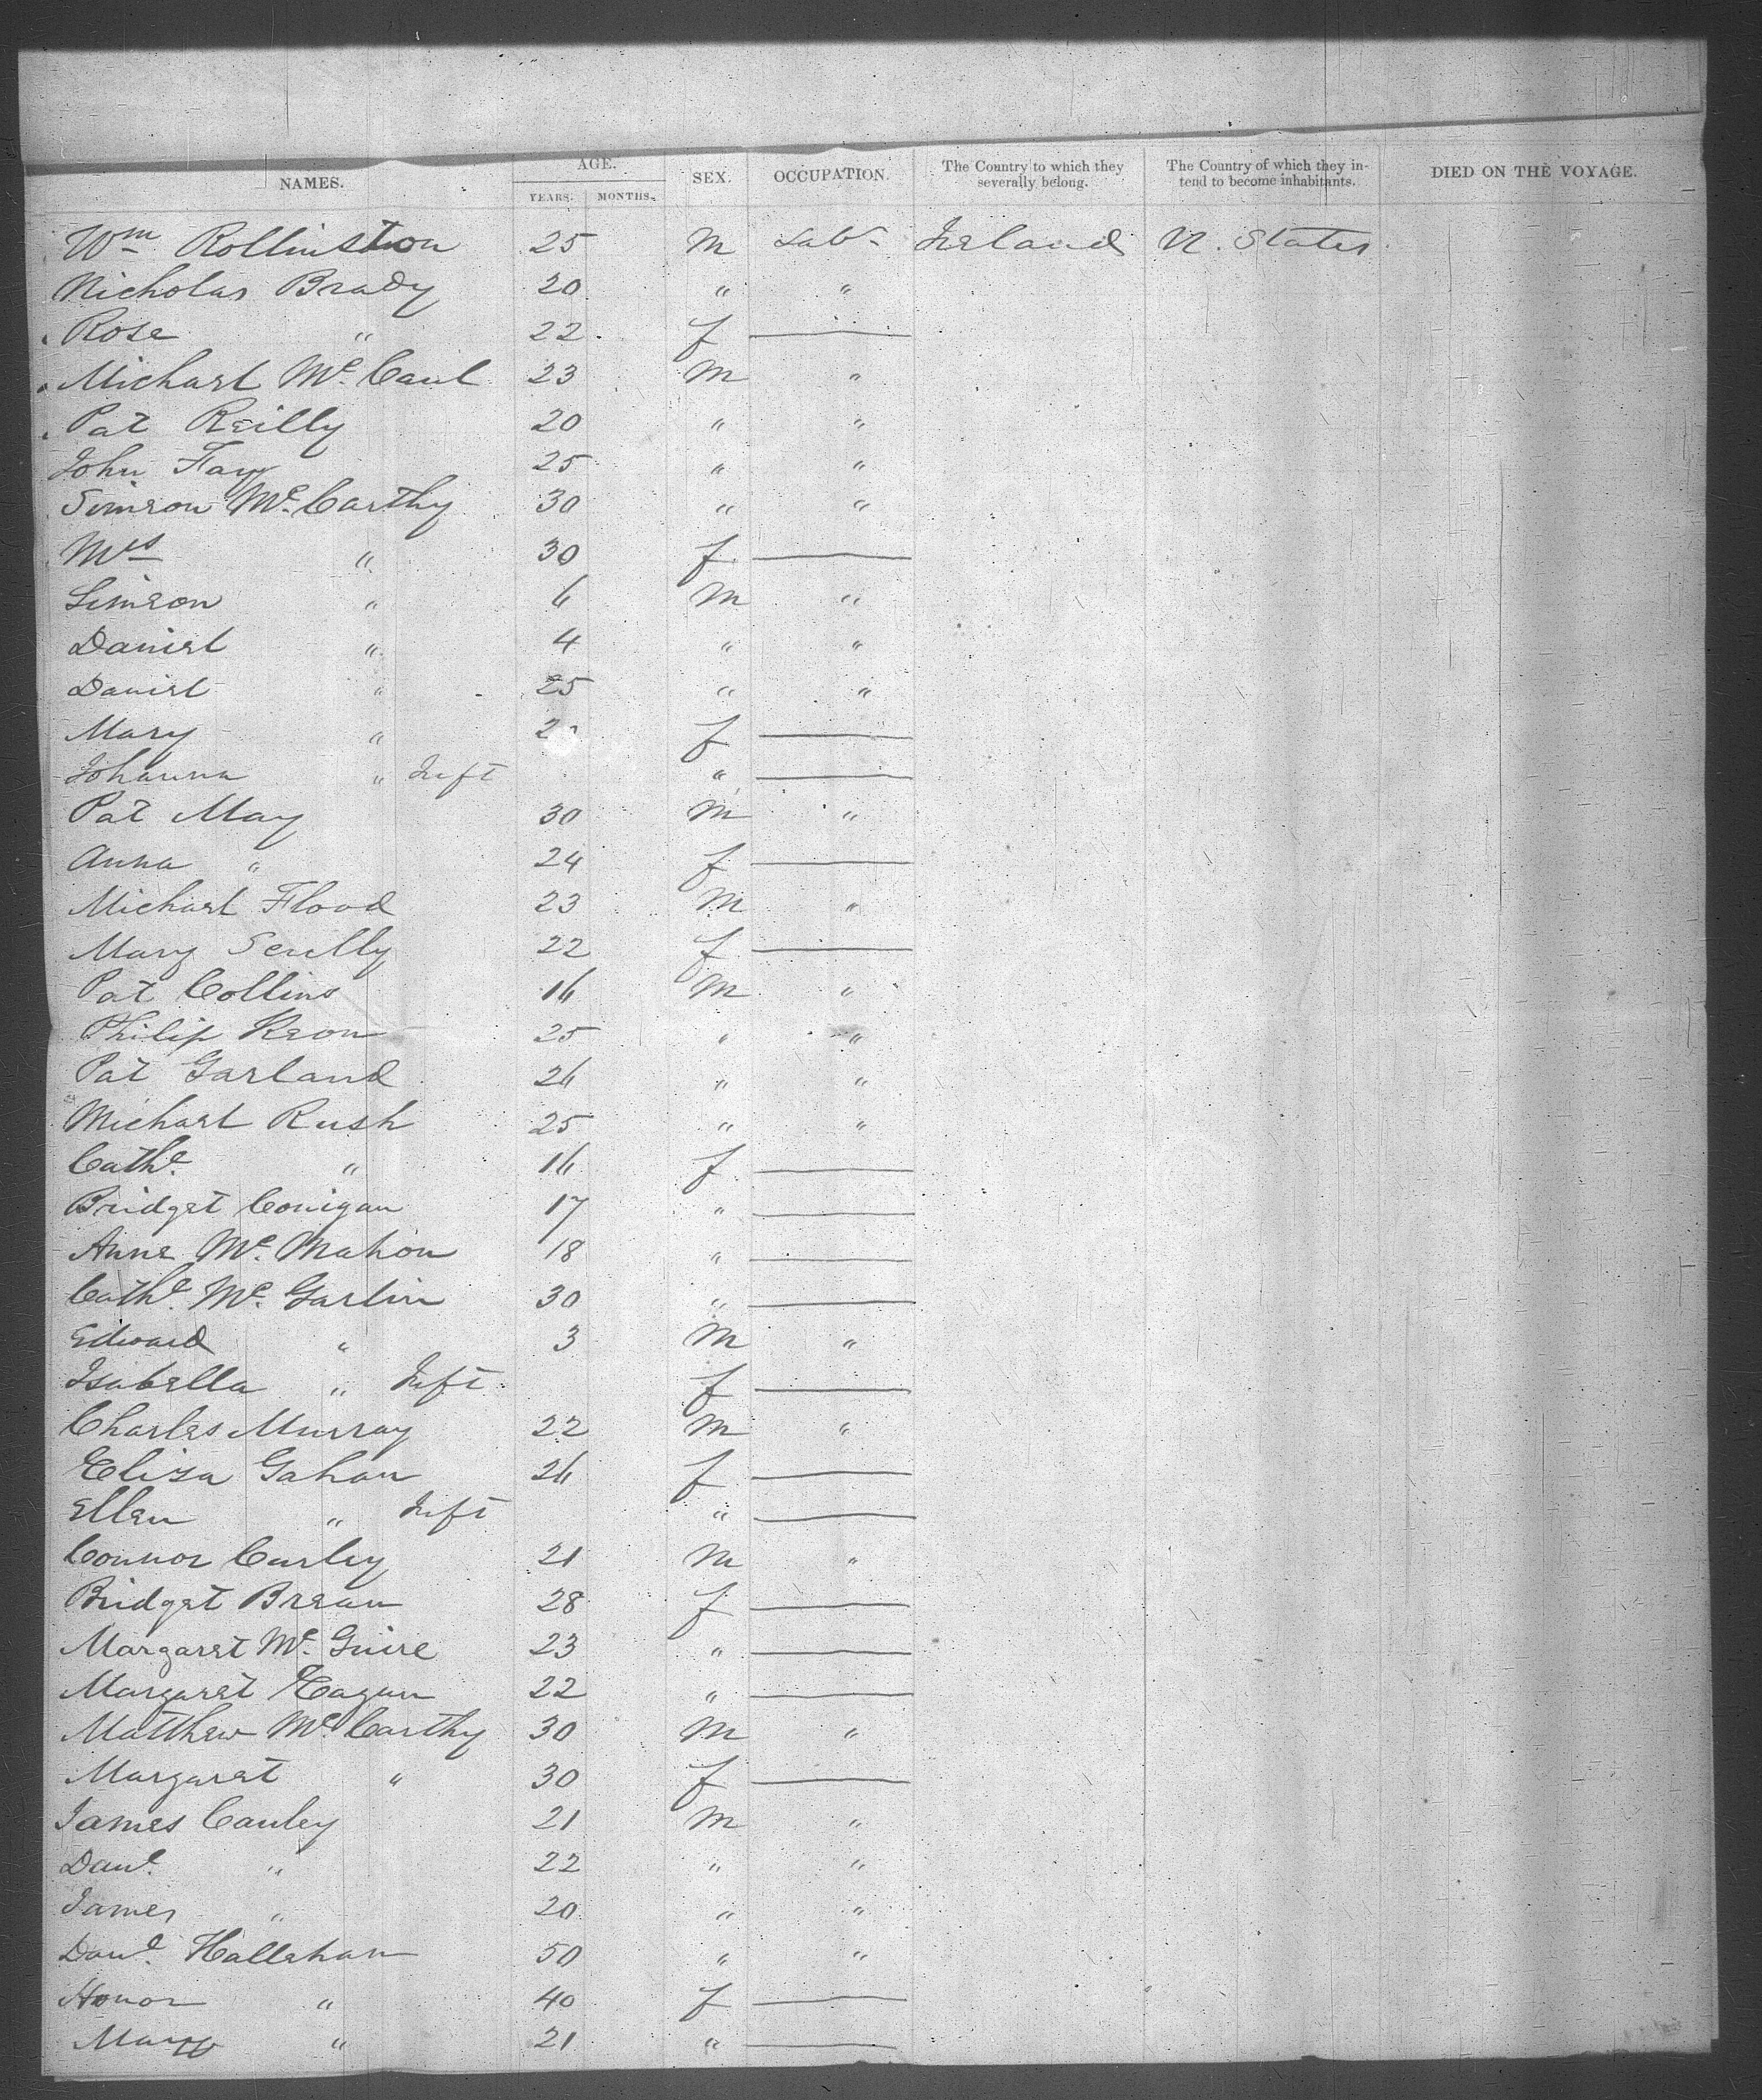 NAMES. AGE. YEARS. MONTHS. SEX. OCCUPATION. The Country to which they severally belong. The Country of which they intend to become inhabitants. DIED ON THE VOYAGE.
Wm Rollinston 25 M Labr Ireland U. States
Nicholas Brady 20 " "
Rose " 22 f —
Michael Mc. Caul 23 M "
Pat Reilly 20 " "
John Fay 25 " "
Simeon Mc. Carthy 30 " "
Mrs " 30 f —
Simeon " 6 M "
Daniel " 4 " "
Daniel " 25 " "
Mary " f —
Johanna " Inft " —
Pat May 30 M "
Anna " 24 f —
Michael Flood 23 M "
Mary Scully 22 f —
Pat Collins 16 M "
Philip Keon 25 " "
Pat Garland 26 " "
Michael Rush 25 " "
Cathe " 16 f —
Bridget Conigan 17 " —
Anne Mc. Mahon 18 " —
Cathe Mc. Garlin 30 " —
Edward " 3 M "
Isabella " Inft f —
Charles Murray 22 M "
Eliza Gahan 26 f —
Ellen " Inft " —
Connor Curley 21 M "
Bridget Brean 28 f —
Margaret Mc. Guire 23 " —
Margaret Eagan 22 " —
Matthew Mc. Carthy 30 M "
Margaret " 30 f —
James Cauley 21 M "
Danl " 22 " "
James " 20 " "
Danl Hallahan 50 " "
Honor " 40 f —
Mary " 21 " —